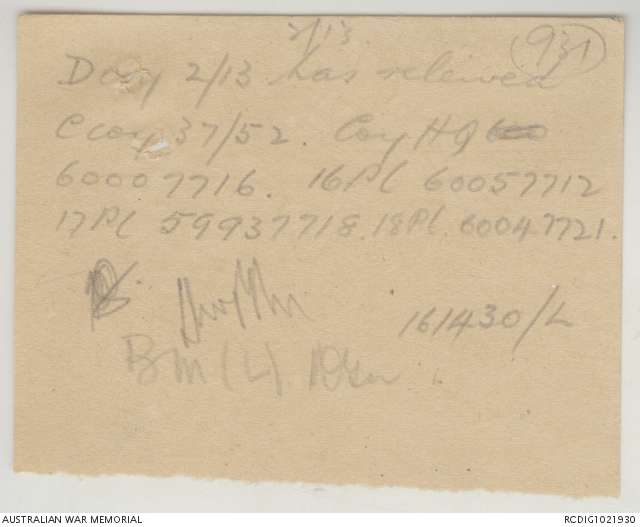 2/13.
931
D coy 2/13 has relieved
C coy 37/52. Coy HQ
60007716. 16Pl 60057712
17Pl 59937718. 18Pl. 60047721.
161430/L
BM (L)
AUSTRALIAN WAR MEMORIAL
RCDIG1021930